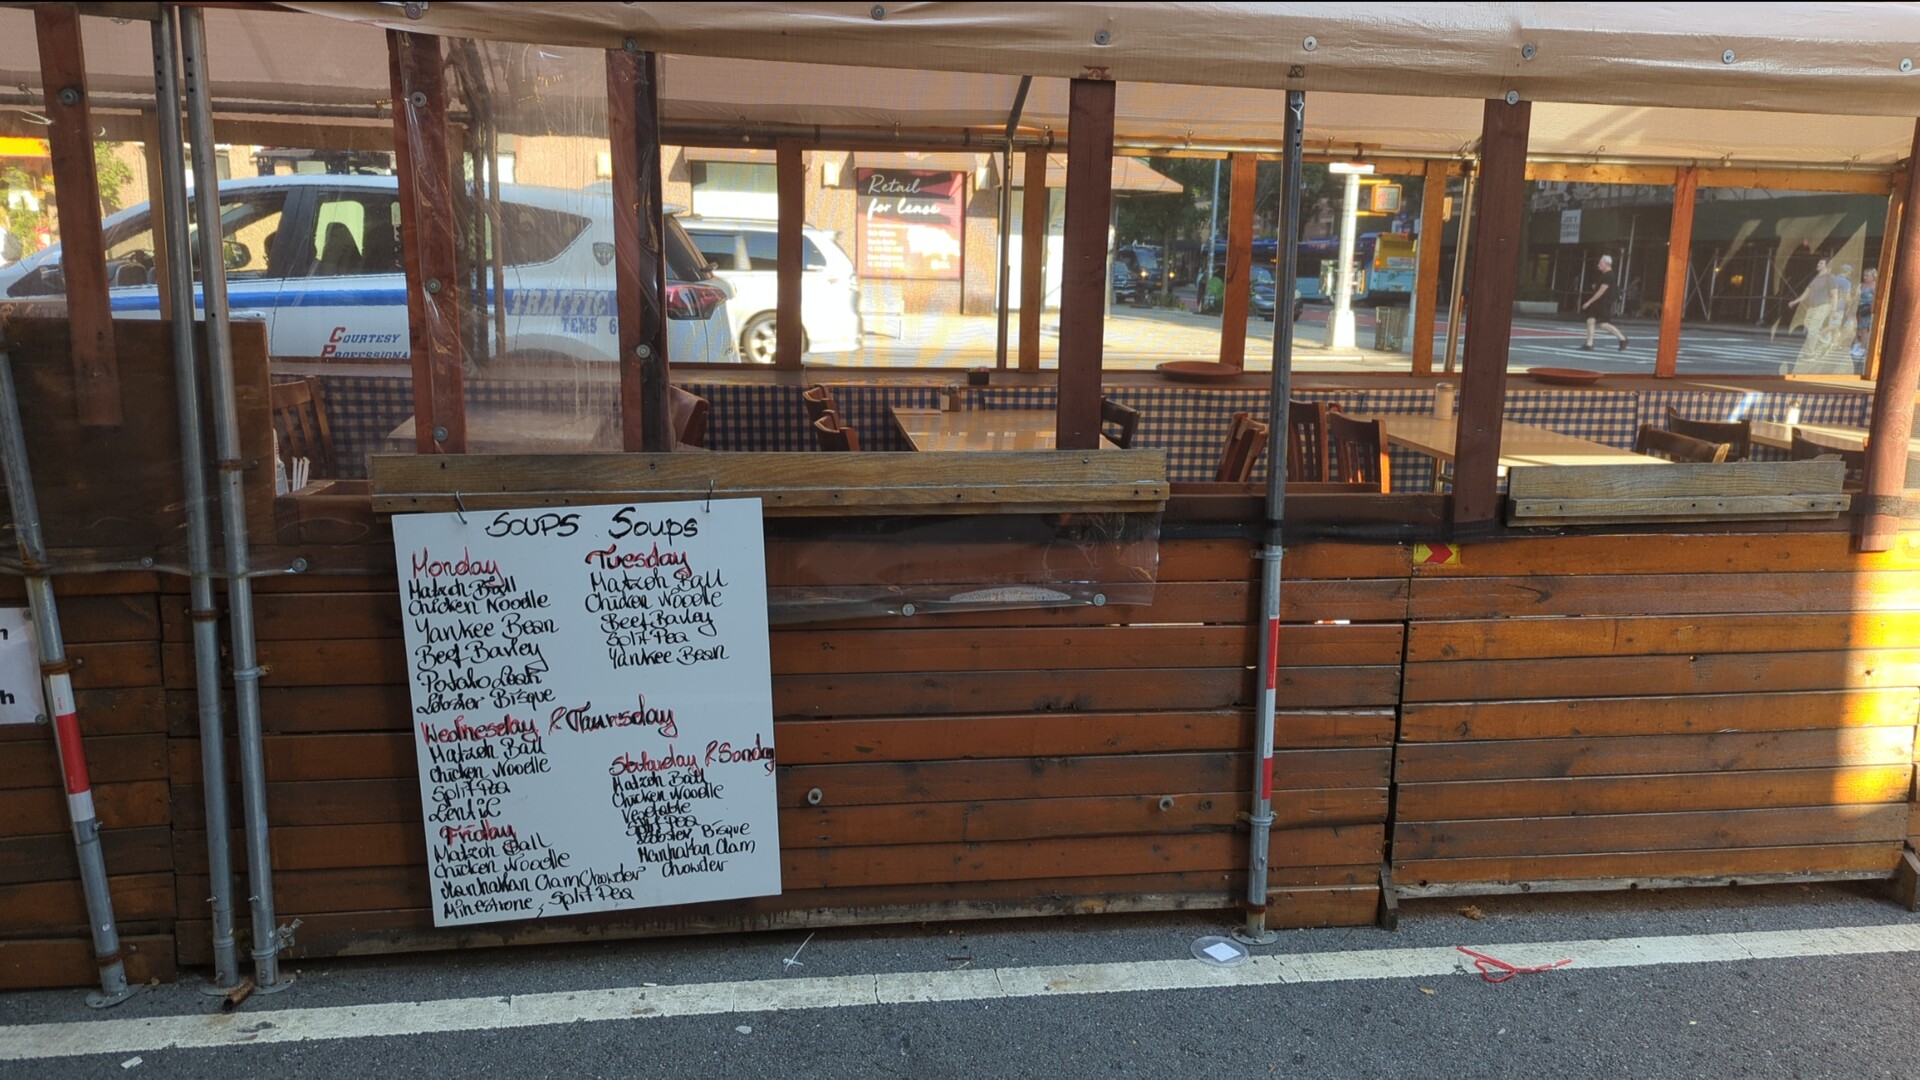 Retail
for lease
TRAFFIC
TEMS 6
COURTESY
PROFESSIONA
SOUPS Soups
Monday
Matzoh Ball
Chicken Noodle
Yankee Bean
Beef Barley
Potato Leek
Lobster Bisque
Tuesday
Matzoh Ball
Chicken Noodle
Beef Barley
Split Pea
Yankee Bean
Wednesday & Thursday
Matzoh Ball
Chicken Noodle
Split Pea
Lentil
Friday
Matzoh Ball
Chicken Noodle
Manhattan Clam Chowder
Minestrone, Split Pea
Saturday & Sunday
Matzoh Ball
Chicken Noodle
Vegetable
Split Pea
Lobster Bisque
Manhattan Clam
Chowder